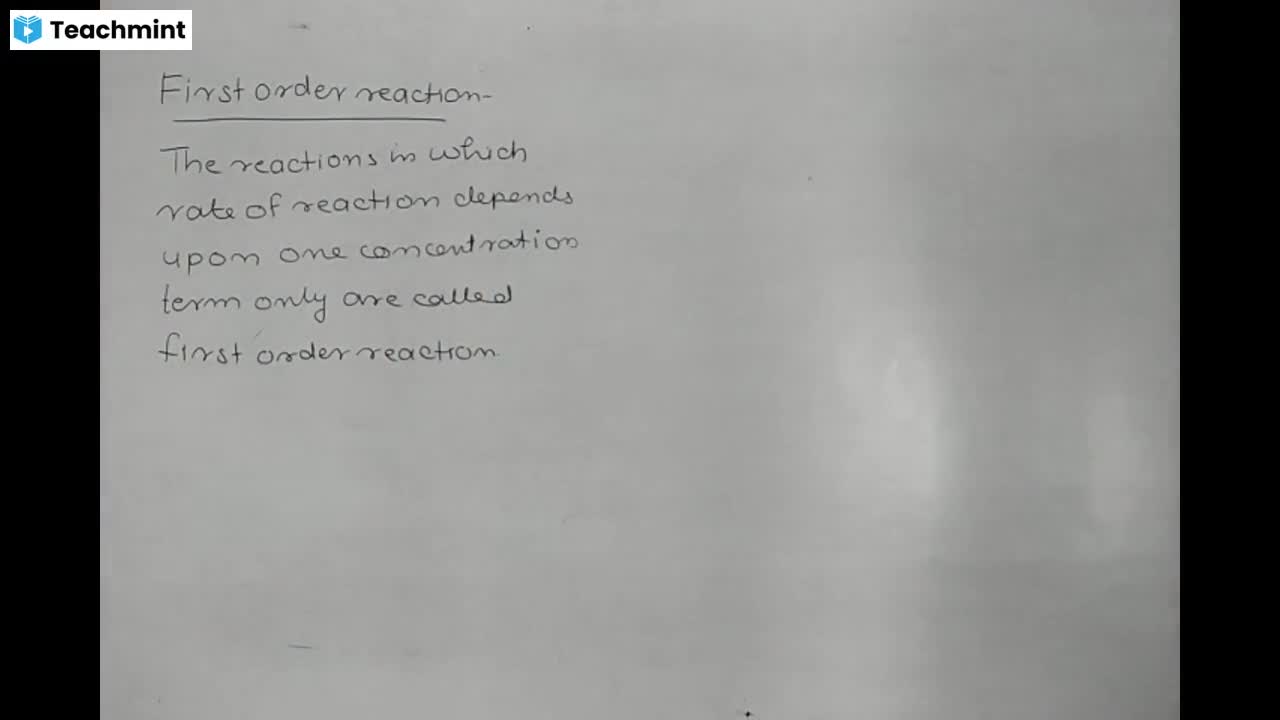 Teachmint
First order reaction-
The reactions in which
rate of reaction depends
upon one concentration
term only are called
first order reaction